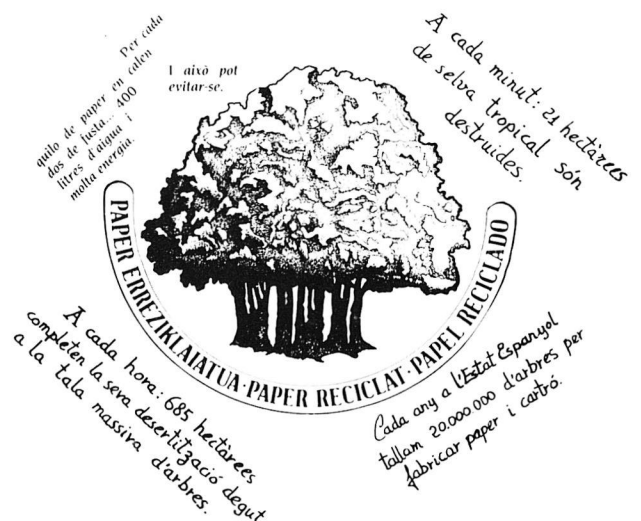 Per cada
quilo de paper en calen
dos de fusta... 400
litres d'aigua i
molta energia.
I això pot
evitar-se.
A cada minut: 21 hectàrees
de selva tropical són
destruides.
PAPER ERREZIKLAIATUA · PAPER RECICLAT · PAPEL RECICLADO
A cada hora: 685 hectàrees
completen la seva desertització degut
a la tala massiva
d'arbres.
Cada any a l'Estat Espanyol
tallam 20.000.000 d'arbres per
fabricar paper i cartró.